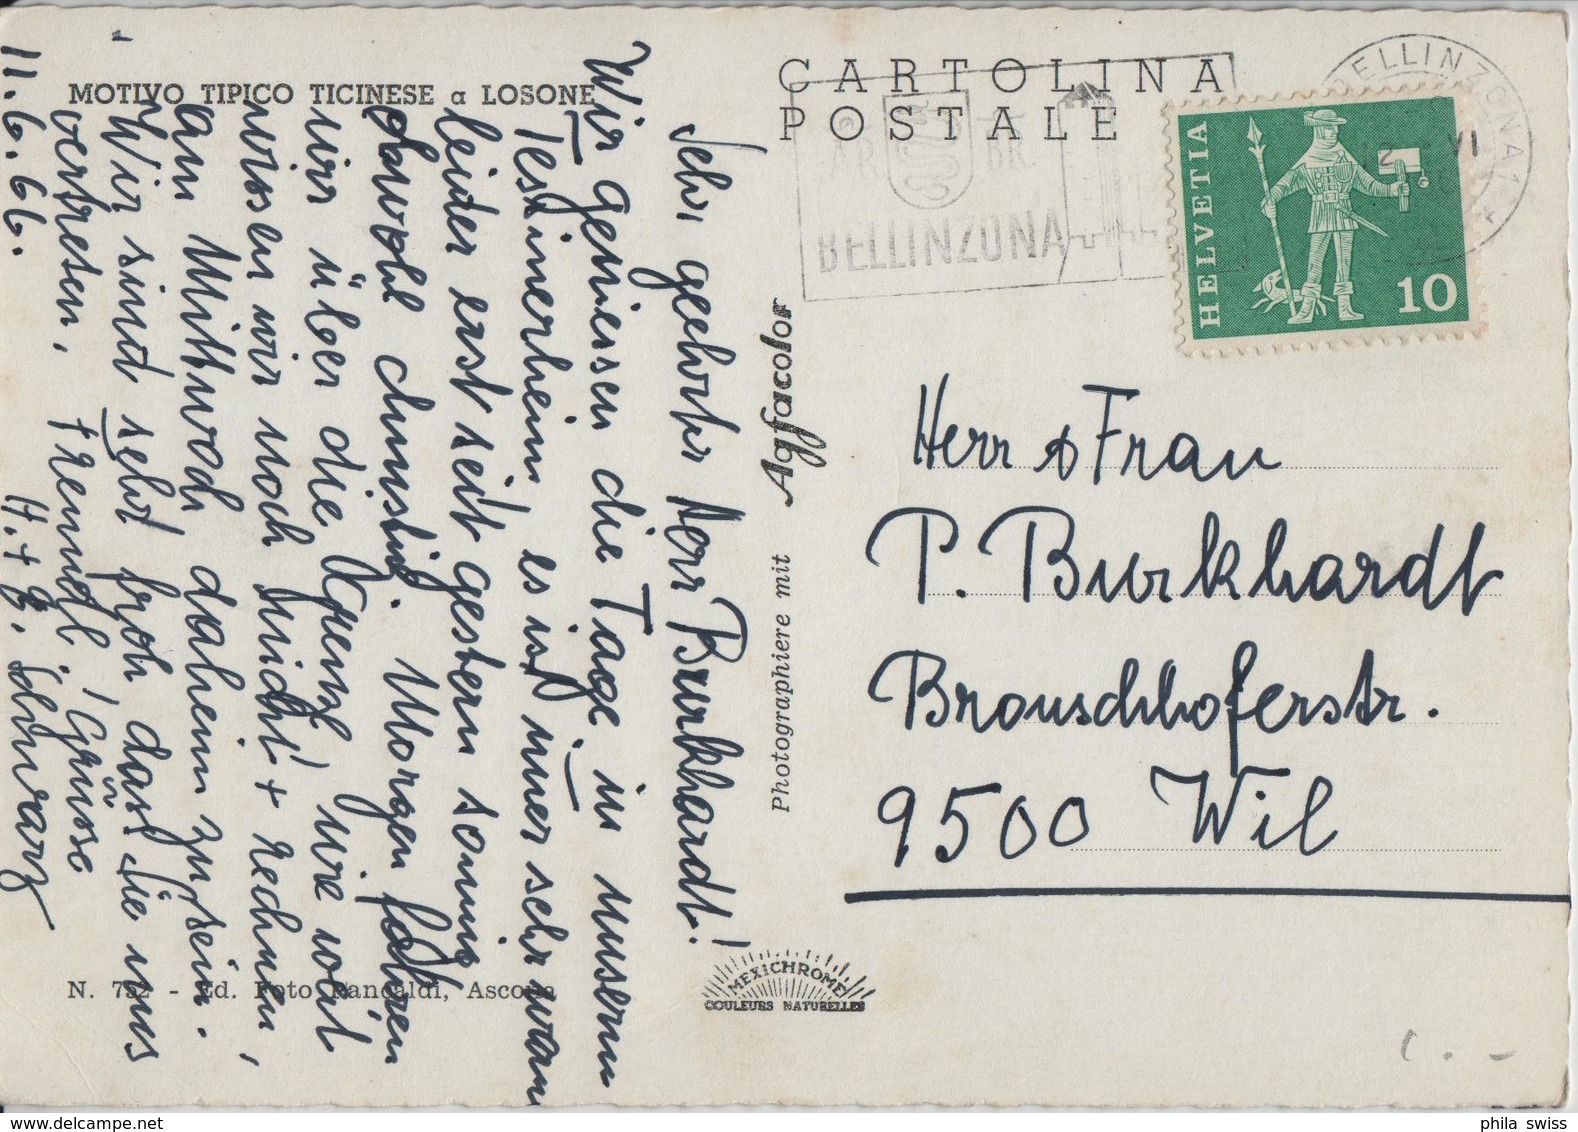 MOTIVO TIPICO TICINESE a LOSONE
CARTOLINA
POSTALE
BELLINZONA 1
12 - VI
BR.
BELLINZONA
HELVETIA
10
11.6.66.
Sehr geehrter Herr Burkhardt!
Wir geniessen die Tage in unserm
Tessinerheim, es ist immer sehr warm
leider erst seit gestern sonnig
obwohl dunstig. Morgen fahren
wir über die Grenze, wie weit
wissen wir noch nicht! + rechnen,
am Mittwoch daheim zu sein.
Wir sind sehr froh, dass Sie uns
vertreten. Freundl. Grüsse
H. + Schwarz
Photographiere mit Agfacolor
Herr & Frau
P. Burkhardt
Bronschhoferstr.
9500 Wil
N. 752 - Ed. Foto Rancaldi, Ascona
MEXICHROME
COULEURS NATURELLES
phila swiss